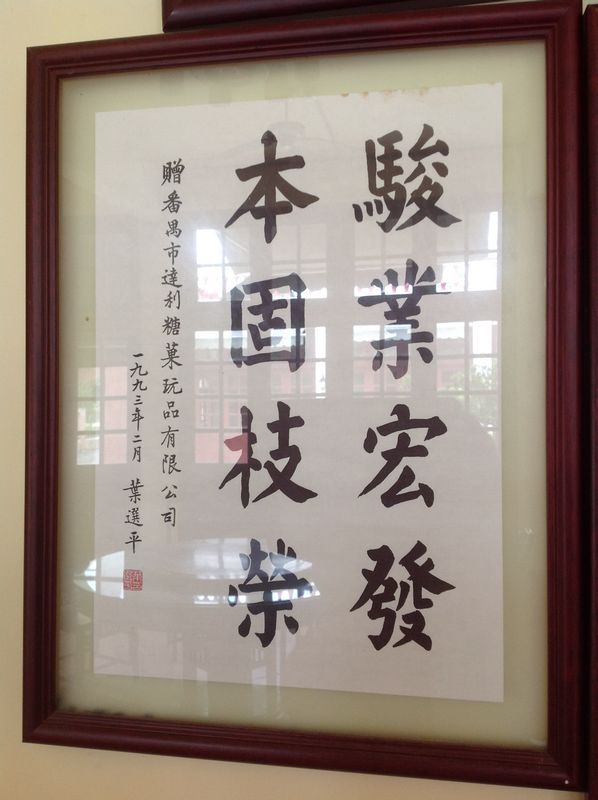 駿業宏發
本固枝榮
贈番禺市達利糖菓玩品有限公司
一九九三年二月 葉選平